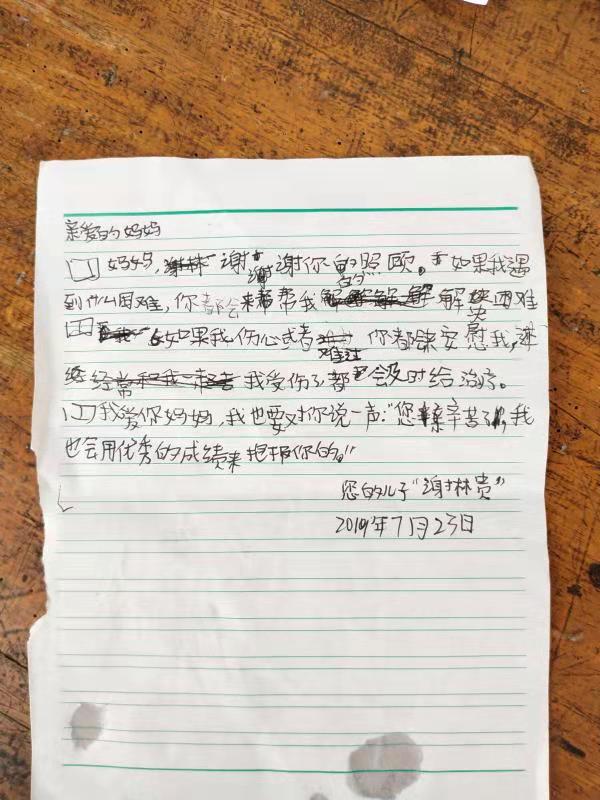 亲爱的妈妈
妈妈,谢谢你的照顾。如果我遇
到什么困难,你都会来帮我解决困难
如果我伤心或者难过你都来安慰我,
我受伤了都会及时给治疗。
我爱你妈妈,我也要对你说一声:"您辛苦了,我
也会用优秀的成绩来抱报你的。"
您的儿子"谢林贵"
2019年7月23日